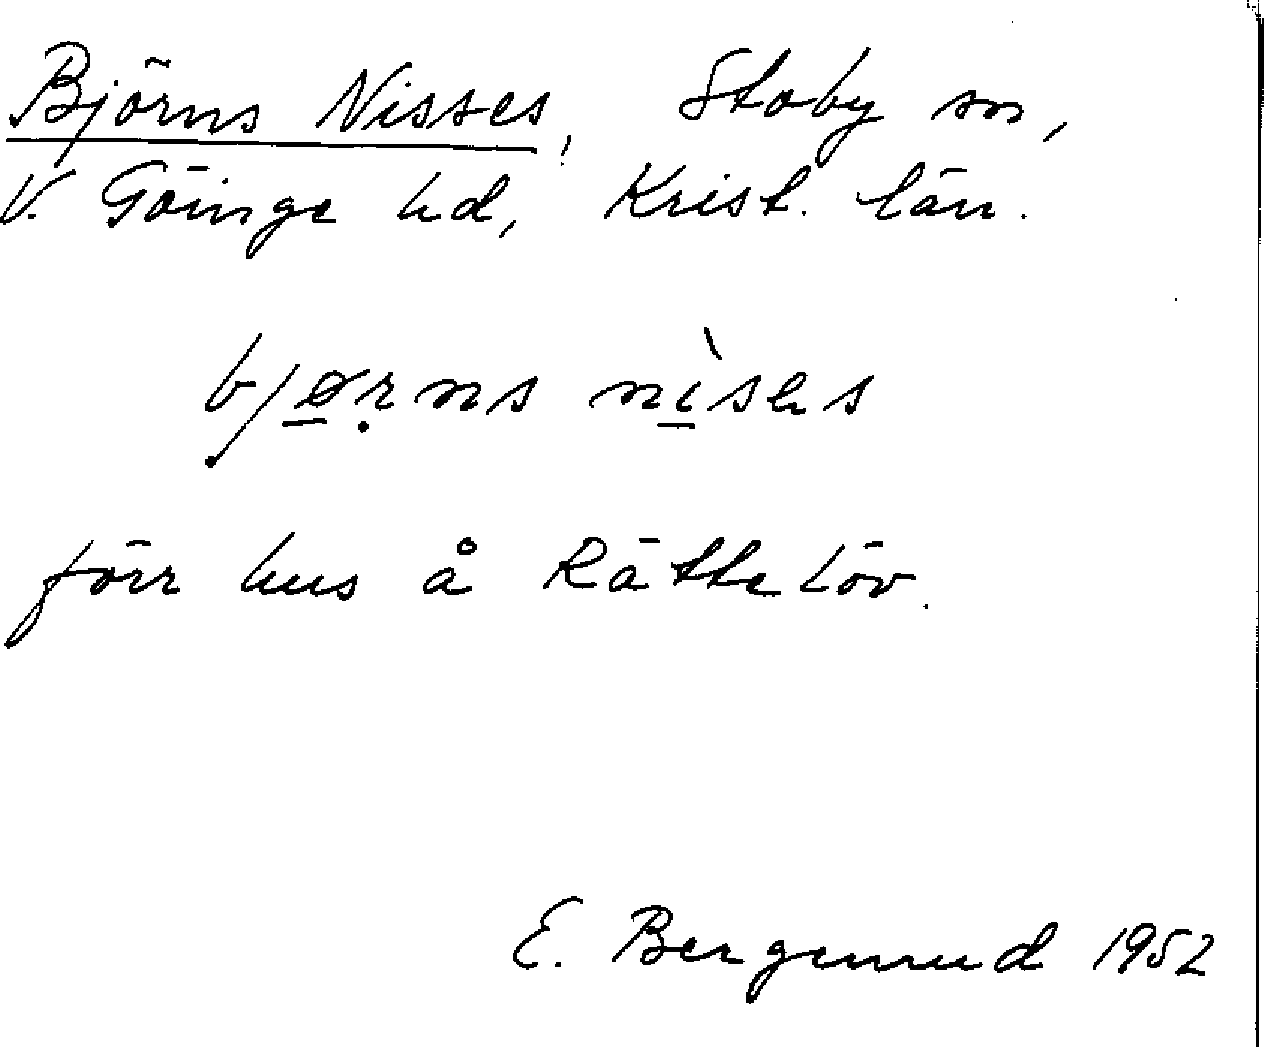 Björns Nisses, Stoby sn,
V. Göinge hd, Krist. län.
bjørns nìses
förr hus å Rättelöv.
E. Bergemud 1952